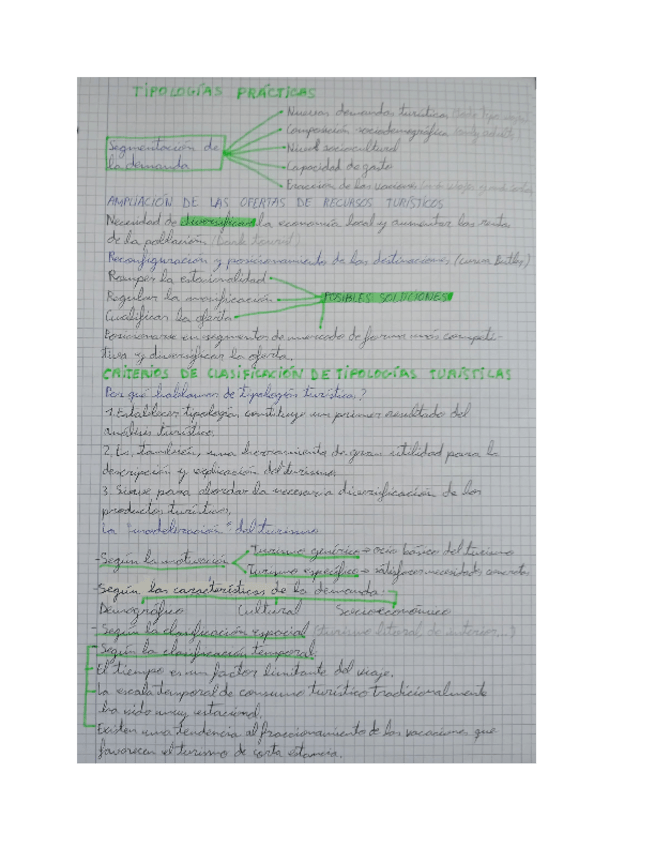 TIPOLOGÍAS PRÁCTICAS
Nuevas demandas turísticas
Composición sociodemográfica
Segmentación de la demanda
Nivel sociocultural
Capacidad de gasto
AMPLIACIÓN DE LAS OFERTAS DE RECURSOS TURÍSTICOS
Necesidad de diversificar la economía local y aumentar las rentas
de la población
Reconfiguración y posicionamiento de los destinaciones (curva Butler)
Romper la estacionalidad
Regular la masificación
POSIBLES SOLUCIONES
Cualificar la oferta
Posicionarse en segmentos de mercado de forma más competi-
tiva y diversificar la oferta.
CRITERIOS DE CLASIFICACIÓN DE TIPOLOGÍAS TURÍSTICAS
Por qué hablamos de tipología turística?
1. Establecer tipología constituye un primer resultado del
análisis turístico.
2. Es, también, una herramienta de gran utilidad para la
descripción y explicación del turismo.
3. Sirve para abordar la necesaria diversificación de los
productos turísticos.
La "modelización" del turismo
Turismo genérico → ocio básico del turismo
-Según la motivación
Turismo específico → satisfacer necesidades concretas
-Según las características de la demanda:
Demográfico Cultural Socioeconómico
-Según la clasificación espacial (turismo litoral, de interior...)
-Según la clasificación temporal:
El tiempo es un factor limitante del viaje.
La escala temporal de consumo turístico tradicionalmente
ha sido muy estacional.
Existen una tendencia al fraccionamiento de las vacaciones que
favorecen el turismo de corta estancia.